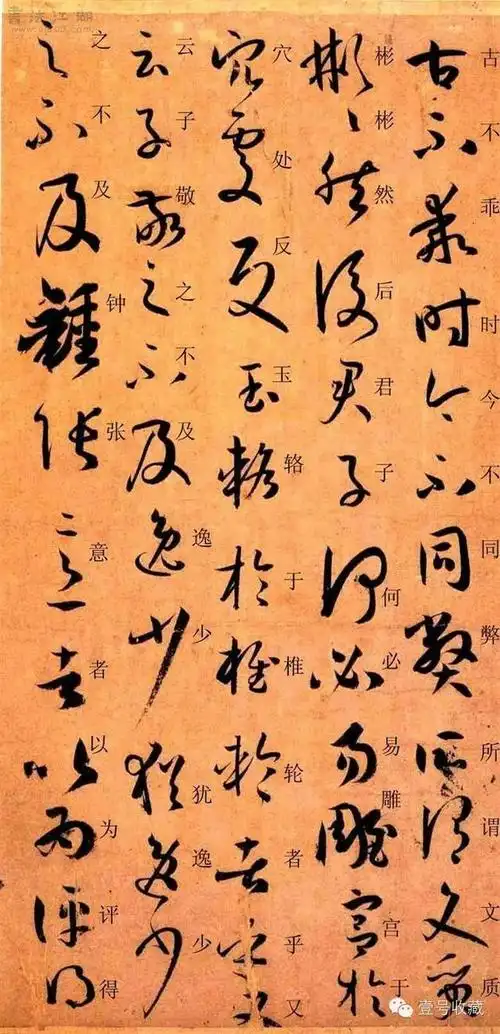 書法江湖
古不乖时今不同弊所谓文质
彬彬然后君子何必易雕宫于
穴处反玉辂于椎轮者乎又
云子敬之不及逸少犹逸少
之不及钟张意者以为评得
壹号收藏